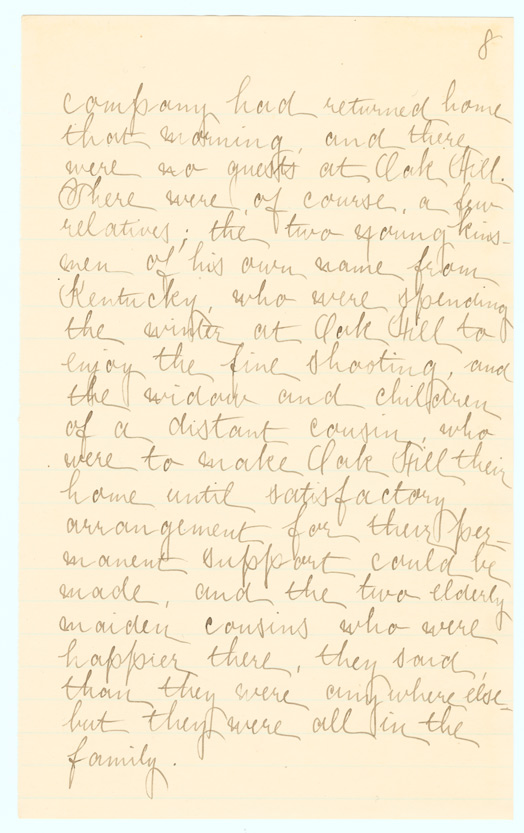 8
company had returned home
that morning, and there
were no guests at Oak Hill.
There were, of course, a few
relatives; the two young kins-
men of his own name from
Kentucky, who were spending
the winter at Oak Hill to
enjoy the fine shooting, and
the widow and children
of a distant cousin, who
were to make Oak Hill their
home until satisfactory
arrangement for their per-
manent support could be
made, and the two elderly
maiden cousins who were
happier there, they said,
than they were anywhere else-
but they were all in the
family.